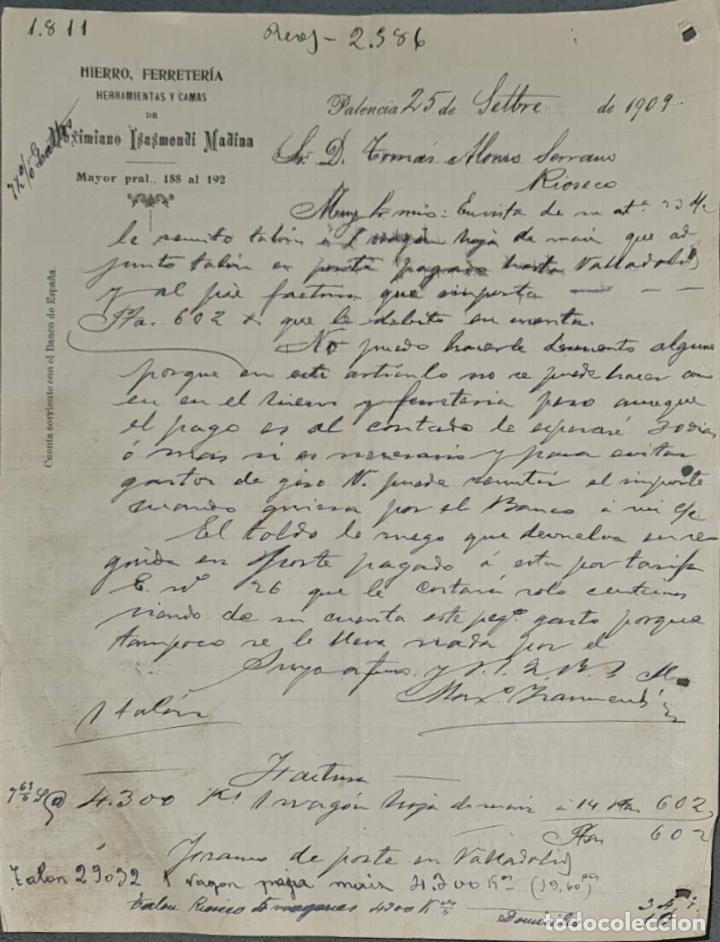 1.811
2.386
HIERRO, FERRETERÍA
HERRAMIENTAS Y CAMAS
DE
Maximiano Isasmendi Madina
Mayor pral., 188 al 192
Cuenta corriente con el Banco de España.
Palencia 25 de Setbre de 1909
Sr. D. Tomás Alonso Serrano
Rioseco
Muy Sr. mio: En vista de su at.ª 23 %
le remito talón á 1 wagón hoja de maiz que ad-
junto talón en porte pagado hasta Valladolid
y al pie factura que importa
Pta. 602 que le debito en cuenta.
No puedo hacerle descuento alguno
porque en este artículo no se puede hacer como
en en el hierro y ferreteria pero aunque
el pago es al contado le esperaré 30 dias
ó mas si es necesario y para evitar
gastos de giro V. puede remitir el importe
cuando quiera por el Banco á mi c/c
El toldo le ruego que devuelva en se
guida en porte pagado á esta por tarifa
E. nº 26 que le costará solo centimos
siendo de su cuenta este peqº. gasto porque
tampoco se le lleva nada por el
Suyo afmo. y s. s. q. b. s. m.
Maxº. Isasmendi
1 talón
Factura
4.300 Ks 1 wagón hoja de maiz á 14 Ptas 602
Ptas 602
Franco de porte en Valladolid
Talon 29032 1 vagon paja maiz 4.300 Ks (19,60)
Talon Rioseco 4300 Ks
Domicilio
todocoleccion